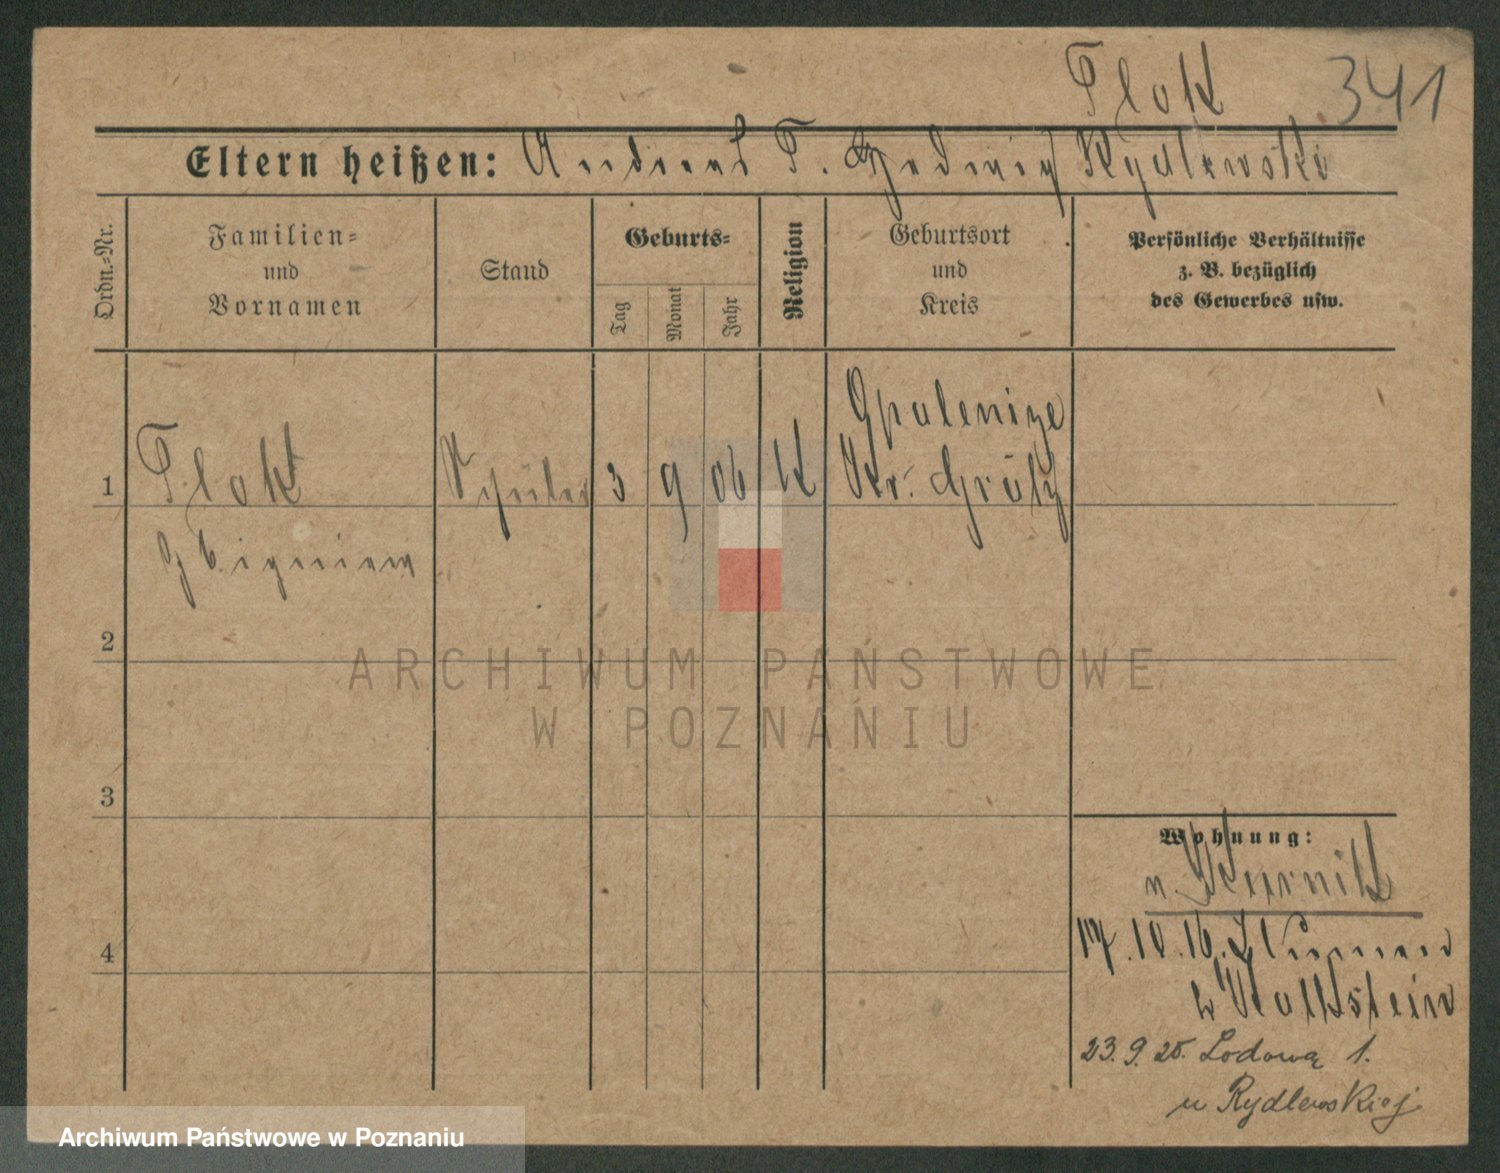 Plok 341
Eltern heißen: Andreas P. Hedwig Rydlewska
Ordn.-Nr.
Familien-
und
Vornamen
Stand
Geburts-
Tag
Monat
Jahr
Religion
Geburtsort
und
Kreis
Persönliche Verhältnisse
z. B. bezüglich
des Gewerbes usw.
1 Plok Schüler 3 9 06 K Opalenize
Kr. Grätz
Zbigniew
2
3
4
Wohnung:
n. Kurnik
17.10.16.
Wollstein
23.9.25. Lodowa 1.
u Rydlewskiej
ARCHIWUM PAŃSTWOWE
W POZNANIU
Archiwum Państwowe w Poznaniu